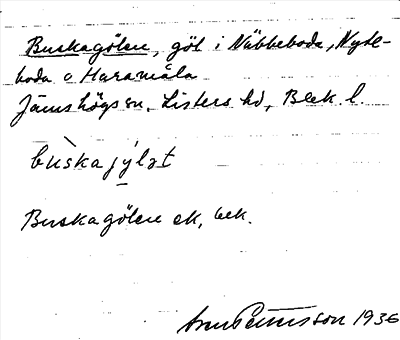 Buskagölen, göl i Näbbeboda, Nyte-
boda o Haramåla
Jämshögs sn, Listers hd, Blek. l.
Buskagölen ek, bek.
Pettersson 1936